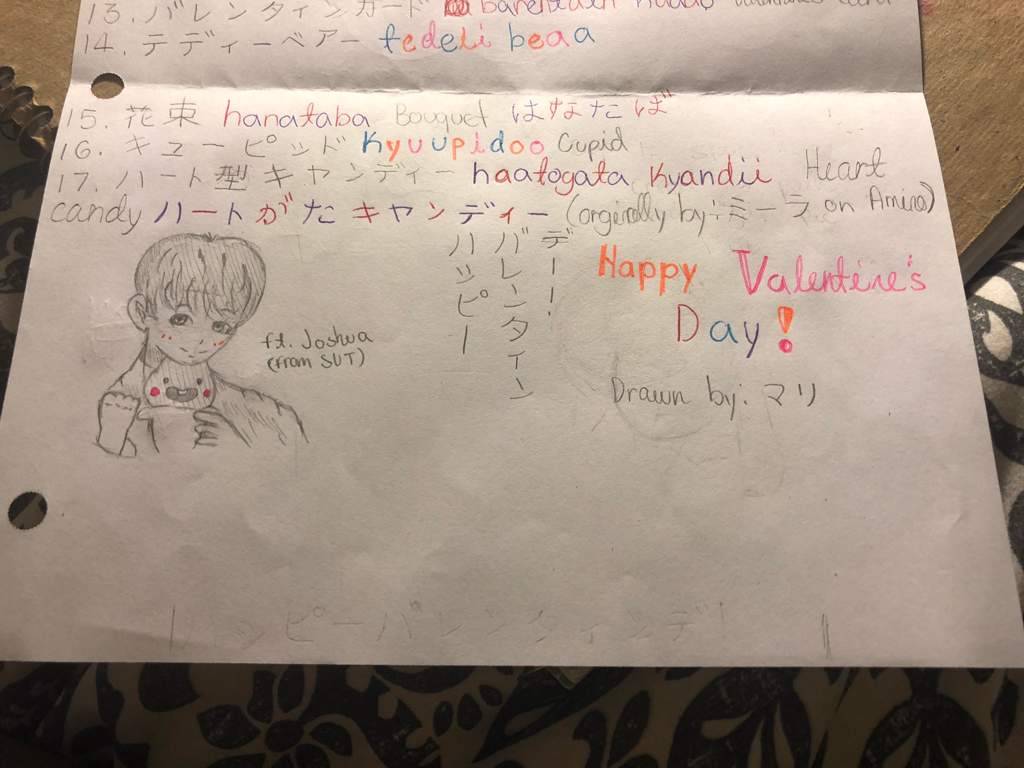 13. バレンタインカード
14. テディーベアー tedeii beaa
15. 花束 hanataba Bouquet はなたば
16. キューピッド Kyuupidoo Cupid
17. ハート型キャンディー haatogata Kyandii Heart
candy ハートがたキャンディー (orginally by: ミーラ on Amino)
ハッピー
バレンタイン
デー!
Happy Valentine's
Day!
ft. Joshua
(from SVT)
Drawn by: マリ
ハッピーバレンタインデー!